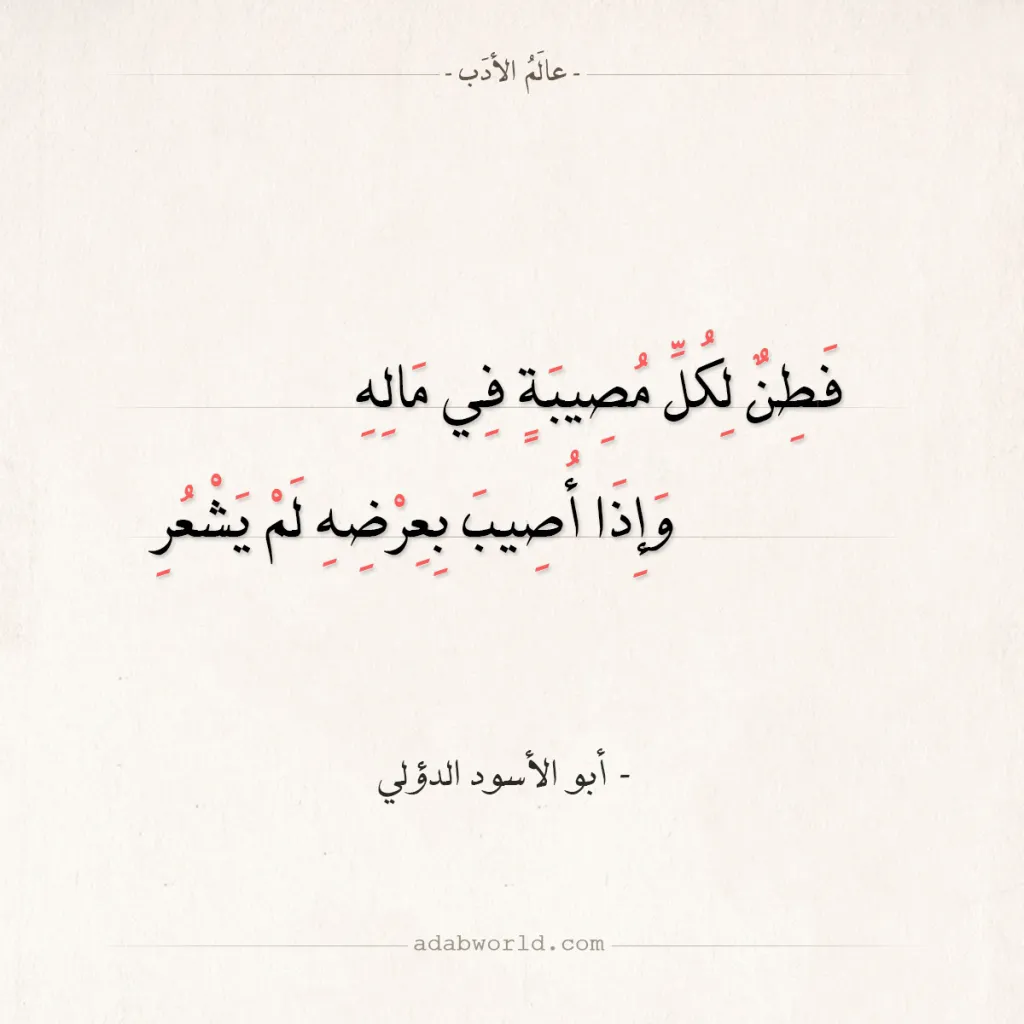 - عالَمُ الأدَب -
فَطِنٌ لِكُلِّ مُصِيبَةٍ فِي مَالِهِ
وَإِذَا أُصِيبَ بِعِرْضِهِ لَمْ يَشْعُرِ
- أبو الأسود الدؤلي
adabworld.com